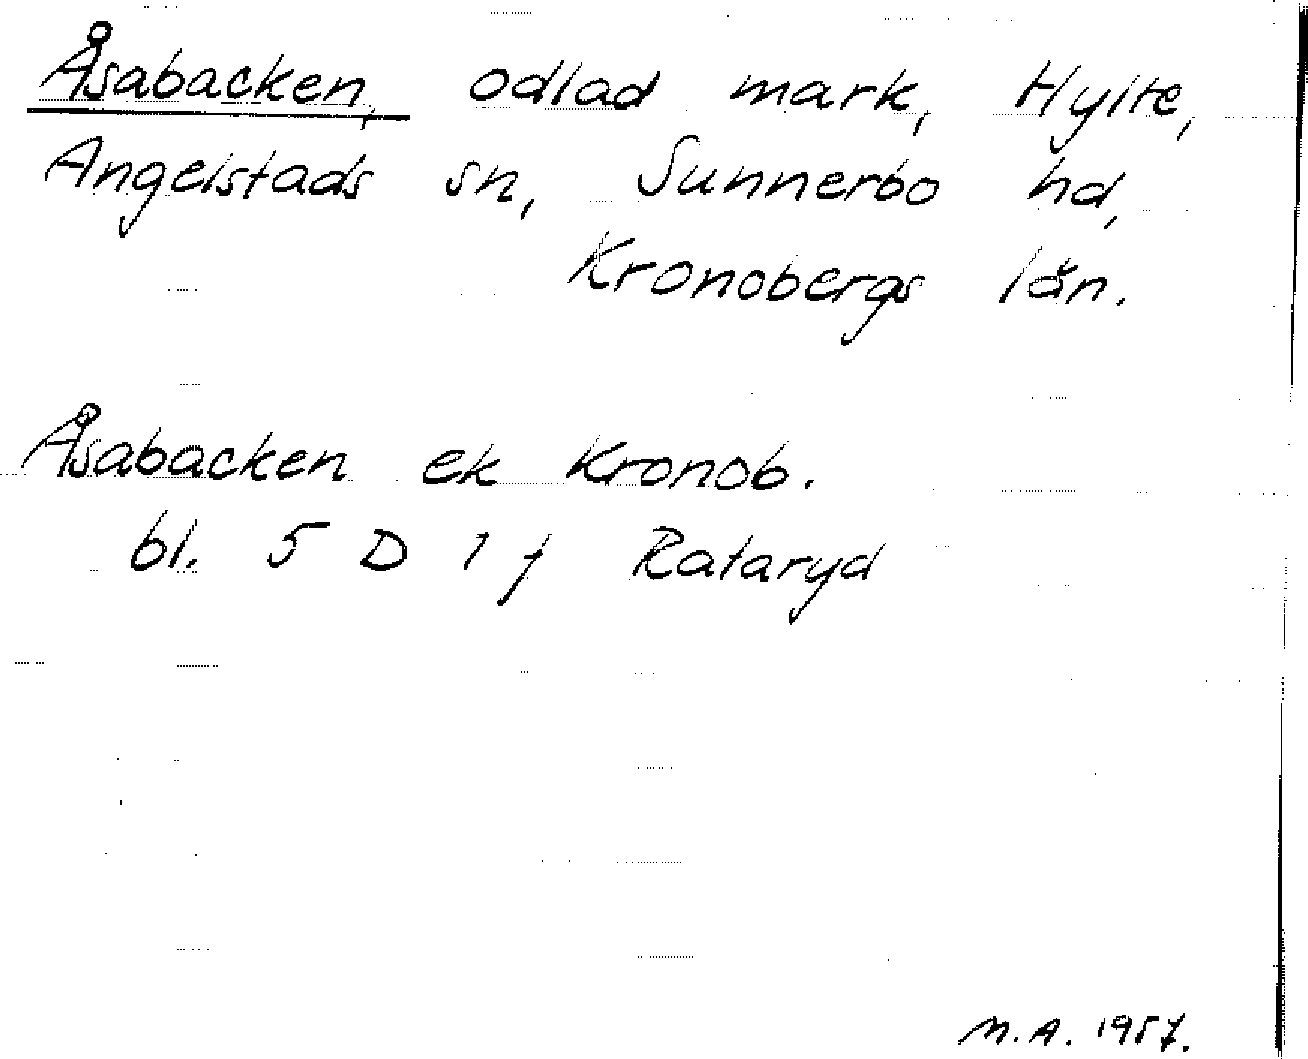 Åsabacken, odlad mark, Hylte,
Angelstads sn, Sunnerbo hd,
Kronobergs län.
Åsabacken ek Kronob.
bl. 5 D 1 f Rataryd
M.A. 1957.